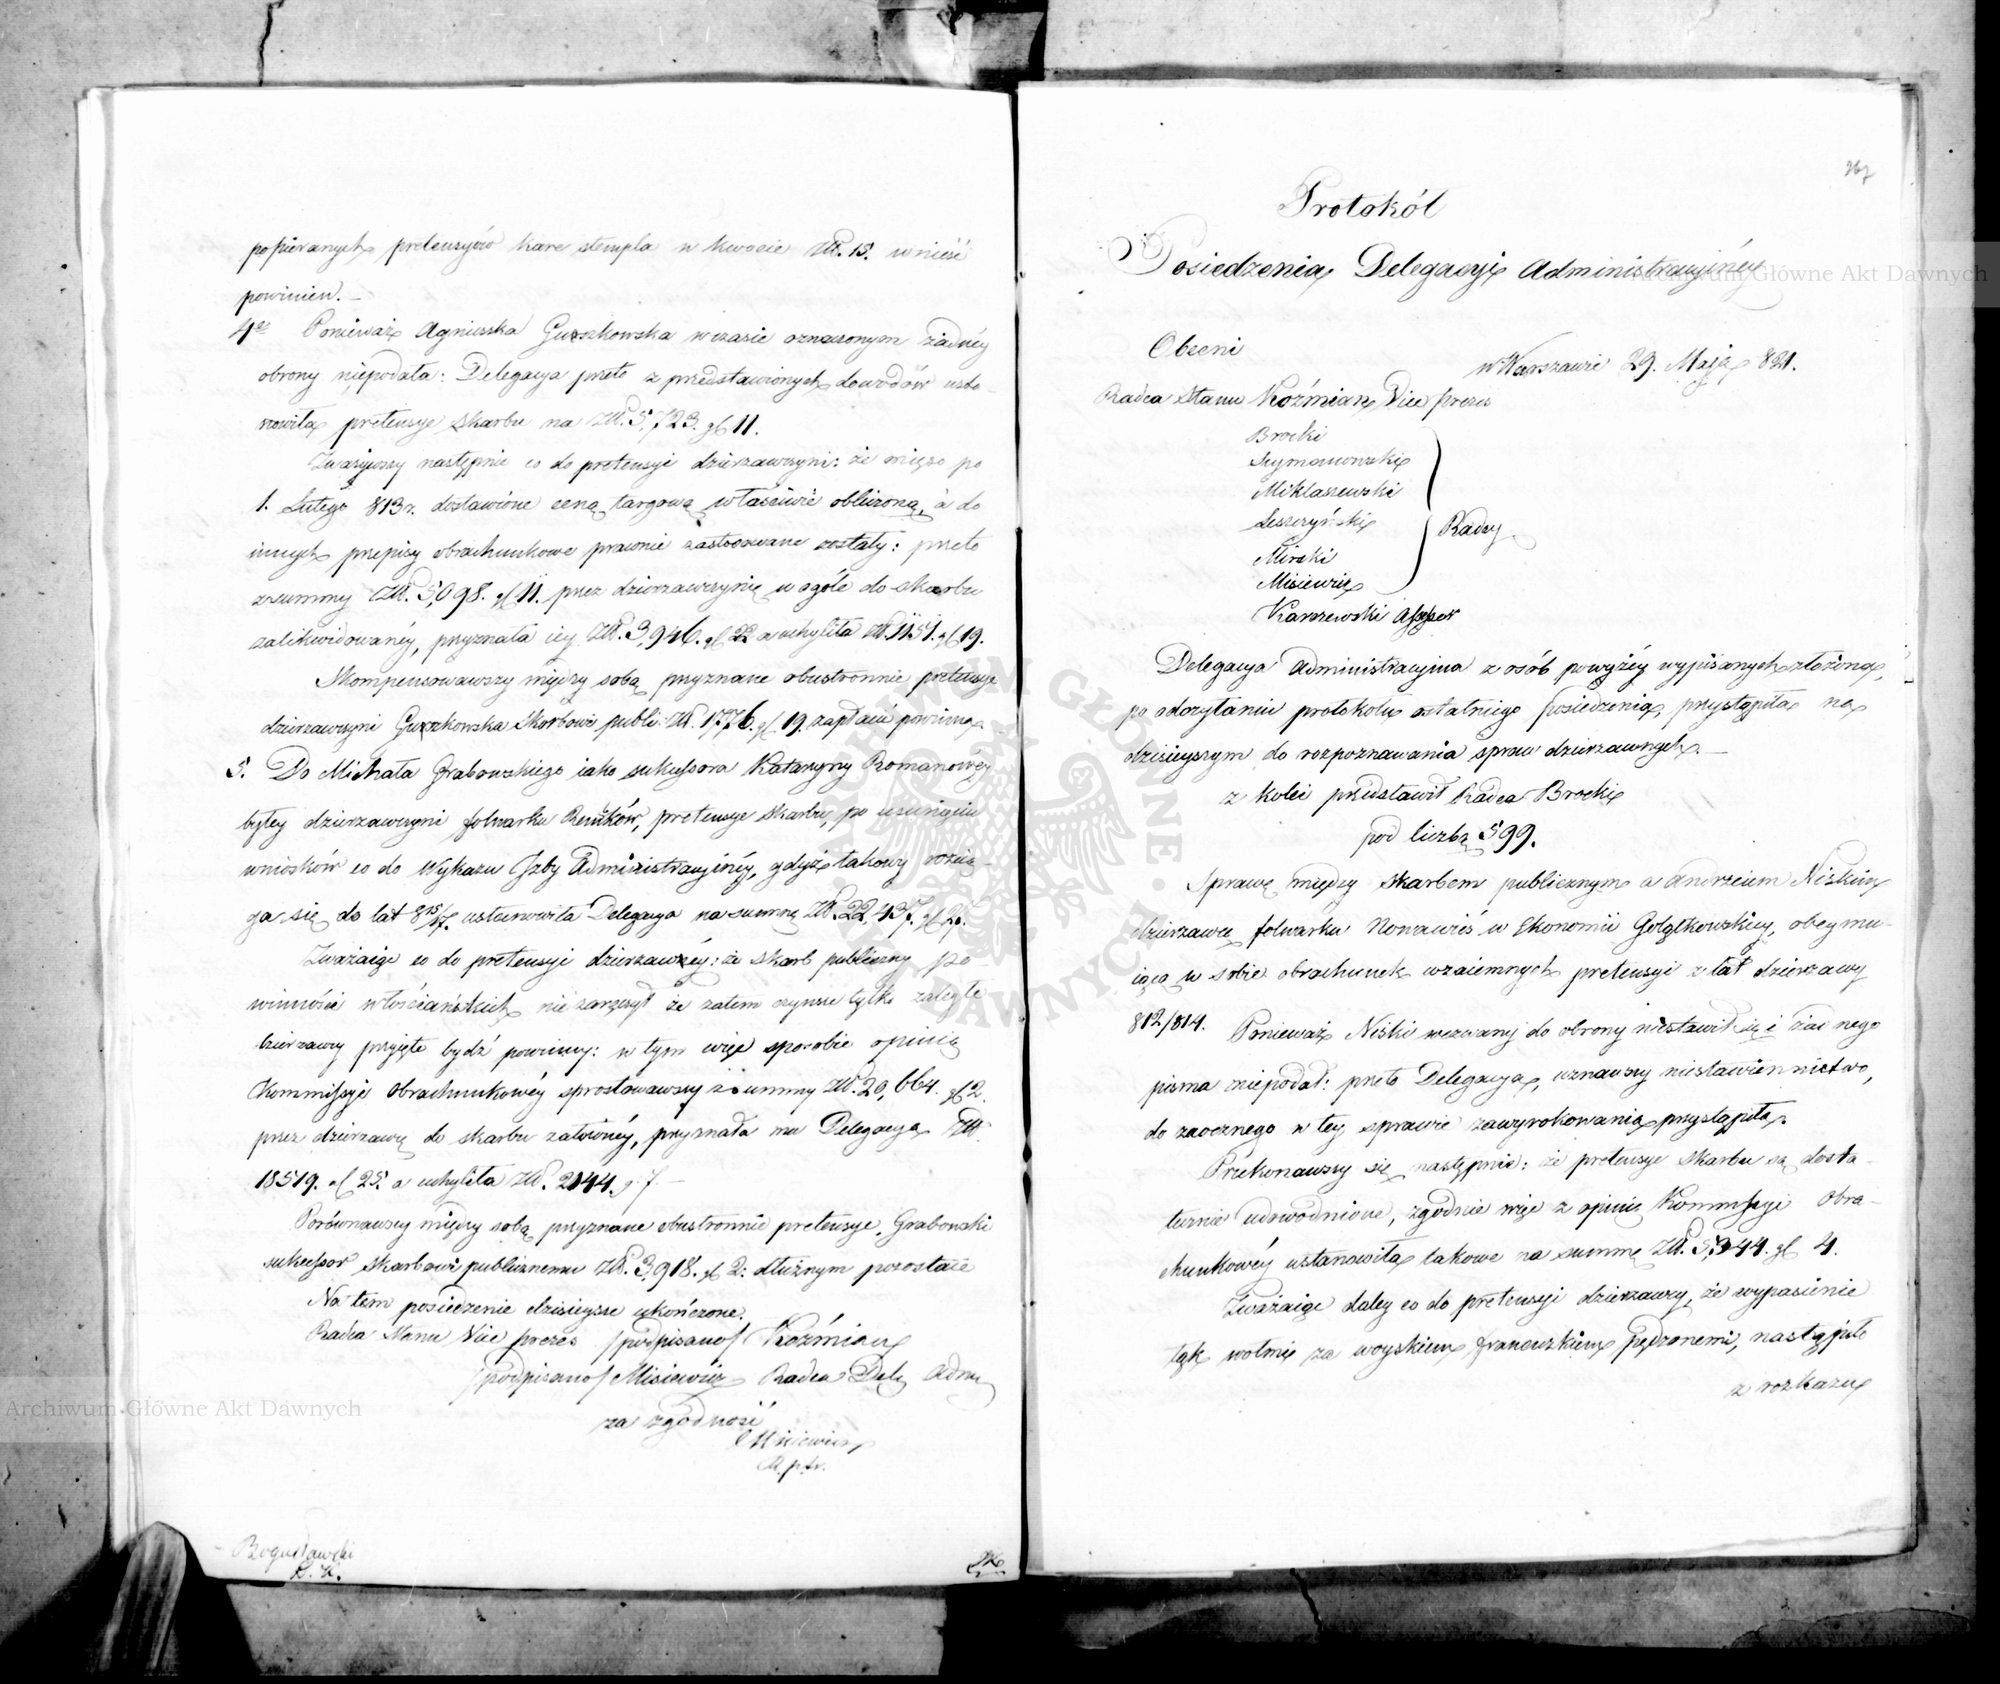 popieranych pretensyów karę stempla w kwocie Złt. 15. wnieść
powinien. —
4e Ponieważ Agnieszka Guszkowska wczasie oznaczonym żadnéy
obrony niepodała: Delegacya przeto z przedstawionych dowodów usta-
nowiła pretensye skarbu na Złt. 5,723. gl 11.
Zważywszy następnie co do pretensyi dzierzawczyni: że mięso po
1. Lutego 813 r. dostawione ceną targową właściwie obliczoną, a do
innych przepisy obrachunkowe prawnie zastosowane zostały: przeto
z summy Złt. 5,098. gl 11. przez dzierzawczynię w ogóle do skarbu
zalikwidowanéy, przyznała iey Złt. 3,946. gl 22 a uchyliła Złt. 1151. gl 19.
Skompensowawszy między sobą przyznane obustronnie pretensye
dzierzawczyni Guszkowska Skarbowi publi: Złt. 1776. gl 19. zapłacić powinna.
5. Do Michała Grabowskiego iako sukcessora Katarzyny Romanowéy
byłey dzierzawczyni folwarku Reńków, pretensye Skarbu, po usunięciu
wniosków co do Wykazu Izby Administracyinéy, gdyż takowy rozcią-
ga się do lat 815/17. ustanowiła Delegacya na summę Złt. 22,437. gl 25.
Zważaiąc co do pretensyi dzierzawnéy: że skarb publiczny po
winności włościańskich nie zaręczył że zatem czynsze tylko zaległe
dzierzawcy przyięte bydź powinny: w tym więc sposobie opinią
Kommissyi Obrachunkowéy sprostowawszy z summy Złt. 20,664. gl 2.
przez dzierzawcę do skarbu zalownéy, przyznała mu Delegacya Złt
18519. gl 25. a uchyliła Złt. 2144. g. 7. —
Porównawszy między sobą przyznane obustronnie pretensye, Grabowski
sukcessor Skarbowi publicznemu Złt. 3,918. gl 2: dłużnym pozostaie
Na tem posiedzenie dzisieysze ukończone.
Radca Stanu Vice prezes /podpisano/ Koźmian
/podpisano/ Misiewicz Radca Del. Adm
za zgodność
Misiewicz
R. p. tr.
Bogusławski
367
Protokół
Posiedzenia Delegacyi Administracyinéy
Obecni
w Warszawie 29. Maja 821.
Radca Stanu Koźmian Vice prezes
Brocki
Szymanowski
Miklaszewski
Leszczyński
Radcy
Mirski
Misiewicz
Karczewski Assesor
Delegacya Administracyina z osób powyżéy wypisanych złożona,
po odczytaniu protokołu ostatniego posiedzenia, przystąpiła na
dzisieyszym do rozpoznawania spraw dzierzawnych. —
z kolei przedstawił Radca Brocki
pod liczbą 599.
Sprawę między Skarbem publicznym a Andrzeiem Niskim
dzierzawcą folwarku Nowawieś w Ekonomii Gołątkowskiey, obeymu-
iącą w sobie obrachunek wzaiemnych pretensyi z lat dzierzawy
812/814. Ponieważ Niski wezwany do obrony niestawił się i żadnego
pisma niepodał: przeto Delegacya, uznawszy niestawiennictwo,
do zaocznego w tey sprawie zawyrokowania przystąpiła.
Przekonawszy się następnie: że pretensye Skarbu są dosta-
tecznie udowodnione, zgodnie więc z opinią Kommissyi Obra-
chunkowéy ustanowiła takowe na summę Złt. 5,344. gl 4.
Zważaiąc daley co do pretensyi dzierzawcy, że wypasienie
łąk wołmi za woyskiem francuzkiem pędzonemi, nastąpiło
z rozkazu
Archiwum Główne Akt Dawnych
Archiwum Główne Akt Dawnych
ARCHIWUM GŁÓWNE AKT DAWNYCH